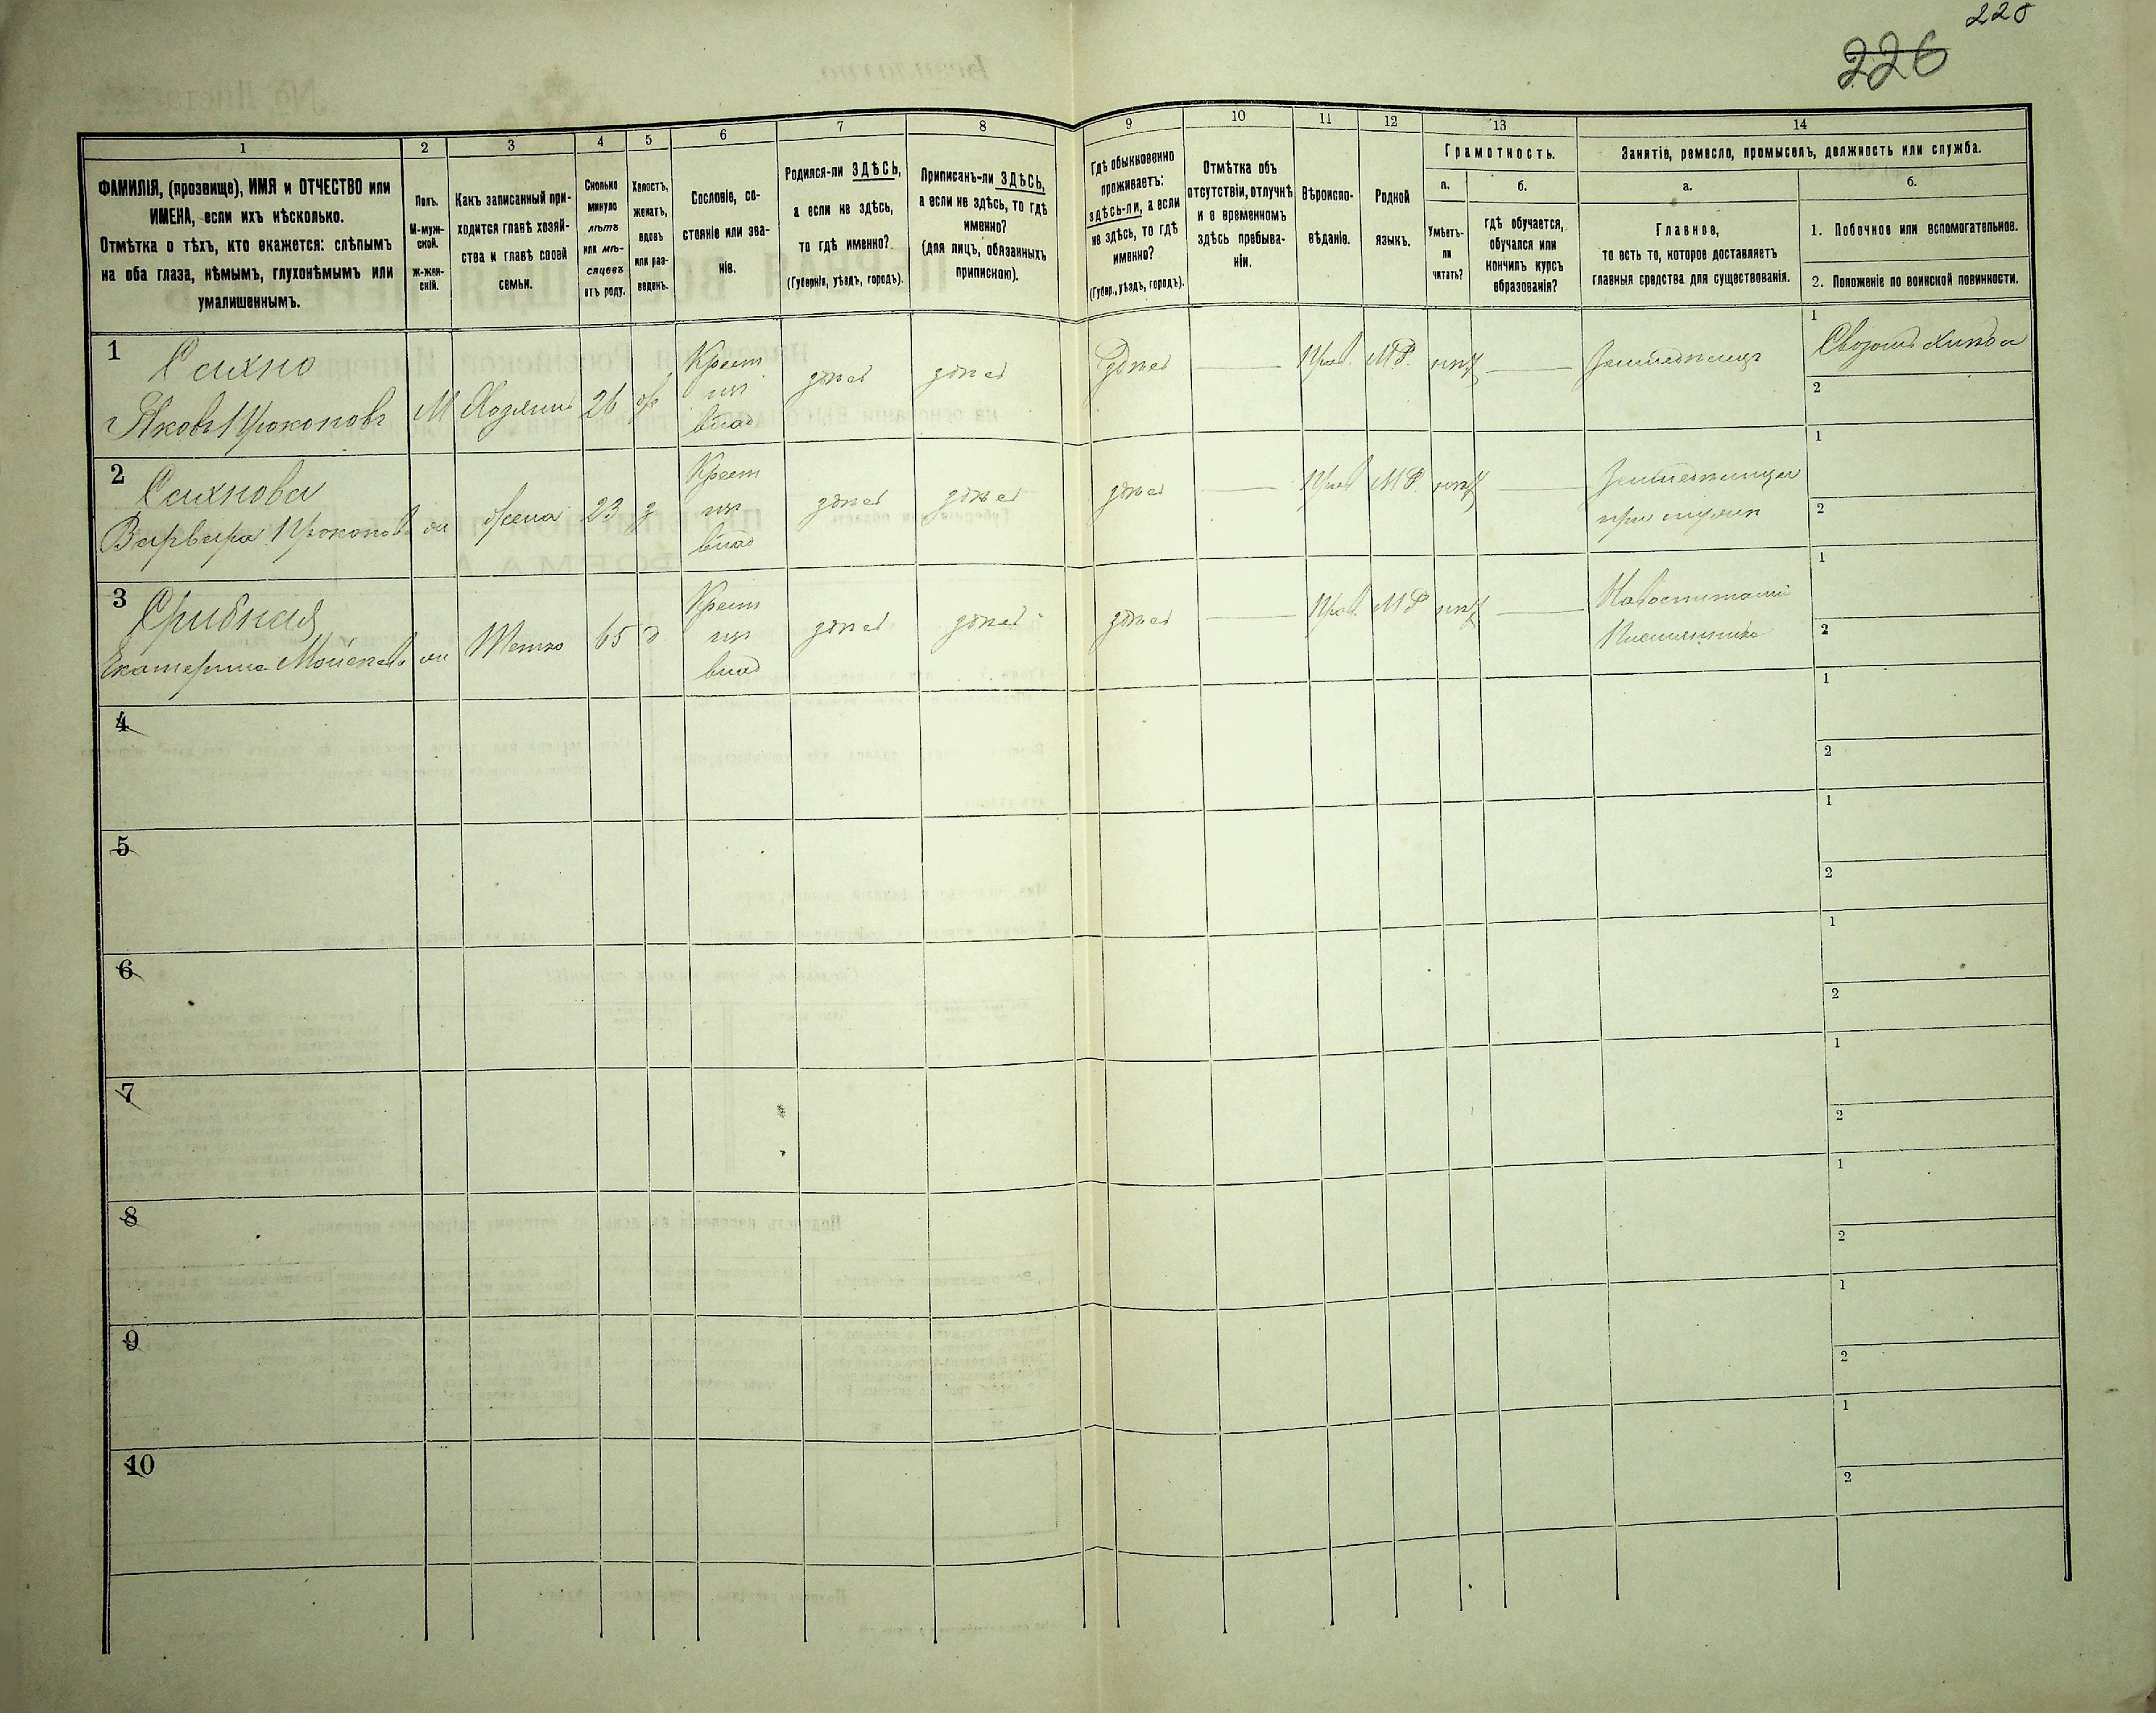 228
226
1
2
3
4
5
6
7
8
9
10
11
12
13
14
ФАМИЛІЯ, (прозвище), ИМЯ и ОТЧЕСТВО или
ИМЕНА, если ихъ нѣсколько.
Отмѣтка о тѣхъ, кто окажется: слѣпымъ
на оба глаза, нѣмымъ, глухонѣмымъ или
умалишеннымъ.
Полъ.
М-муж-
ской.
Ж-жен-
скій.
Какъ записанный при-
ходится главѣ хозяй-
ства и главѣ своей
семьи.
Сколько
минуло
лѣтъ
или мѣ-
сяцевъ
отъ роду.
Холостъ,
женатъ,
вдовъ
или раз-
веденъ.
Сословіе, со-
стояніе или зва-
ніе.
Родился-ли ЗДѢСЬ,
а если не здѣсь,
то гдѣ именно?
(Губернія, уѣздъ, городъ).
Приписанъ-ли ЗДѢСЬ,
а если не здѣсь, то гдѣ
именно?
(для лицъ, обязанныхъ
припискою).
Гдѣ обыкновенно
проживаетъ:
здѣсь-ли, а если
не здѣсь, то гдѣ
именно?
(Губер., уѣздъ, городъ).
Отмѣтка объ
отсутствіи, отлучкѣ
и о временномъ
здѣсь пребыва-
ніи.
Вѣроиспо-
вѣданіе.
Родной
языкъ.
Грамотность.
а.
Умѣетъ-
ли
читать?
б.
гдѣ обучается,
обучался или
кончилъ курсъ
образованія?
Занятіе, ремесло, промыселъ, должность или служба.
а.
Главное,
то есть то, которое доставляетъ
главныя средства для существованія.
б.
1. Побочное или вспомогательное.
2. Положеніе по воинской повинности.
1
Сахно
Яковъ Прокоповъ
М
Хозяинъ
26
ж
Крест
из
влад
здѣсь
здѣсь
здѣсь
Прав.
МР.
нѣт
Земледѣлецъ
1
2
2
Сахнова
Варвара Прокопов
ж
жена
23
з
Крест
из
влад
здѣсь
здѣсь
здѣсь
Прав
МР.
нѣт
Земледѣлица
при мужи
1
2
3
Екатерина Моисеев
ж
65
в
Крест
из
влад
здѣсь
здѣсь
здѣсь
Прав.
МР
нѣт
1
2
4
1
2
5
1
2
6
1
2
7
1
2
8
1
2
9
1
2
10
1
2